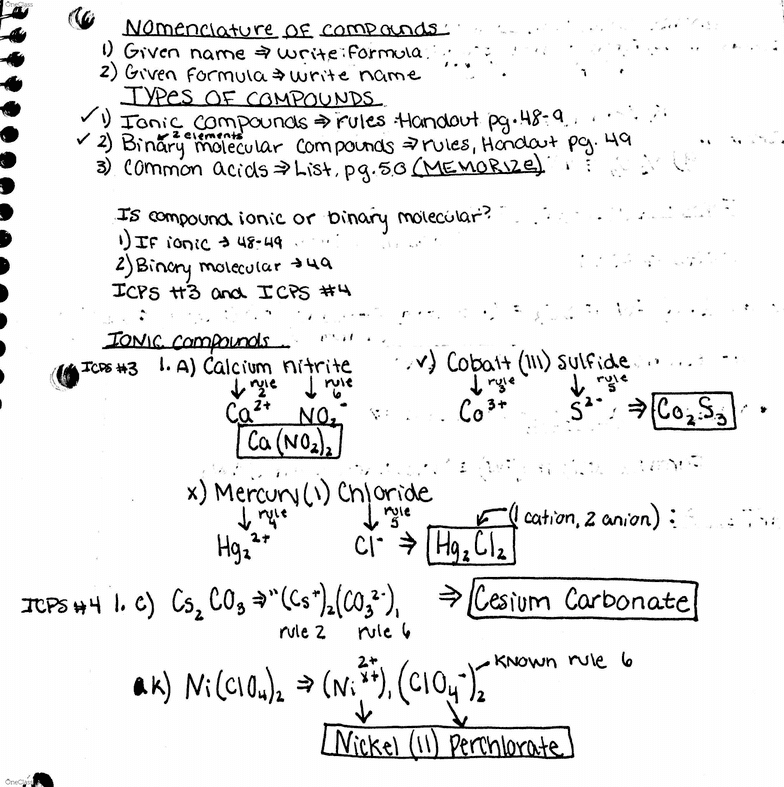 OneClass
NOMENCLATURE OF COMPOUNDS
1) Given name ⇒ write formula
2) Given formula ⇒ write name
TYPES OF COMPOUNDS
✓ 1) Ionic compounds ⇒ rules Handout pg. 48-9
2 elements
✓ 2) Binary molecular compounds ⇒ rules, Handout pg. 49
3) common acids ⇒ List, pg. 50 (MEMORIZE)
Is compound ionic or binary molecular?
1) If ionic → 48-49
2) Binary molecular → 49
ICPS #3 and ICPS #4
IONIC compounds
ICPS #3 1. A) Calcium nitrite
↓ rule 2 ↓ rule 6
Ca²⁺ NO₂⁻
Ca(NO₂)₂
v) Cobalt (III) sulfide
↓ rule 3 ↓ rule 5
Co³⁺ S²⁻ ⇒ Co₂S₃
x) Mercury (I) Chloride
↓ rule 4 ↓ rule 5
(1 cation, 2 anion)
Hg₂²⁺ Cl⁻ ⇒ Hg₂Cl₂
ICPS #4 1. c) Cs₂CO₃ ⇒ "(Cs⁺)₂(CO₃²⁻)₁ ⇒ Cesium Carbonate
rule 2 rule 6
ak) Ni(ClO₄)₂ ⇒ (Ni^x+)₁ (ClO₄⁻)₂
2+
Known rule 6
Nickel (II) Perchlorate
OneClass